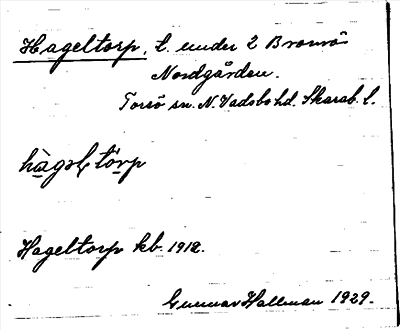 Hageltorp, t. under 2 Bromö
Nordgården.
Torsö sn. N. Vadsbo hd. Skarab. l.
Hageltorp kb. 1912.
Gunnar Hallman 1929.